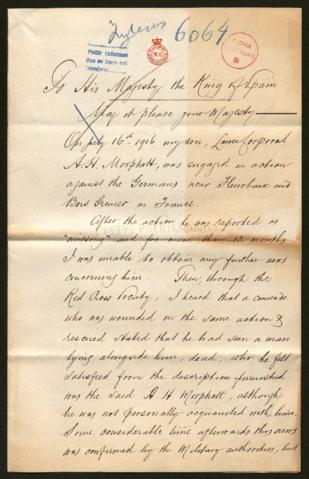 Ingleses 6064
Pedir informes
To His Majesty the King of Spain
May it please your Majesty
On July 16th 1916 my son, Lance Corporal
A. H. Morphett, was engaged in action
against the Germans near Fleurbaix and
Bois Grenier in France.
After the action he was reported as
"missing" and for more than 12 months
I was unable to obtain any further news
concerning him. Then, through the
Red Cross Society, I heard that a comrade
who was wounded in the same action &
rescued stated that he had seen a man
lying alongside him, dead, who he felt
satisfied from the description furnished
was the said A H Morphett, although
he was not personally acquainted with him.
Some considerable time afterwards this news
was confirmed by the Military authorities, but